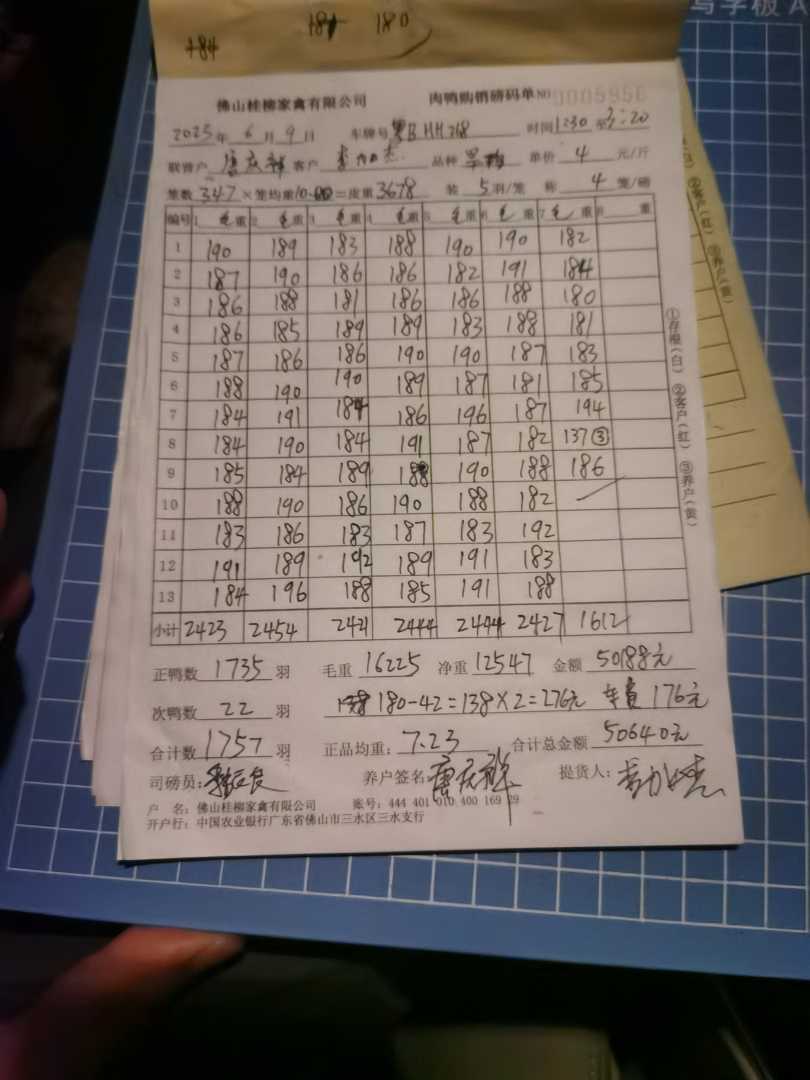 写字板 A
184 180
+84
佛山桂柳家禽有限公司 肉鸭购销磅码单 NO 0005956
2025年 6月 9日 车牌号 HH768 时间1230至3:20
联营户 唐庆 客户 李 品种 单价 4 元/斤
笼数 347×笼均重10.00=皮重3678 装 5羽/笼 称 4 笼/磅
编号 1 毛重 2 毛重 3 毛重 4 毛重 5 毛重 6 毛重 7 毛重 8 重
1 190 189 183 188 190 190 182
2 187 190 186 186 182 191 184
3 186 188 181 186 186 188 180
4 186 185 189 189 183 188 181
5 187 186 186 190 190 187 183
6 188 190 190 189 187 181 185
7 184 191 184 186 196 187 194
8 184 190 184 191 187 182 137③
9 185 184 189 188 190 188 186
10 188 190 186 190 188 182
11 183 186 183 187 183 192
12 191 189 192 189 191 183
13 184 196 188 185 191 188
小计 2423 2454 2421 2444 2444 2427 1612
正鸭数 1735 羽 毛重 16225 净重 12547 金额 50188元
次鸭数 22 羽 180-42=138×2=276元 车费 176元
合计数 1757 羽 正品均重: 7.23 合计总金额 50640元
司磅员: 养户签名: 唐庆 提货人:
户 名: 佛山桂柳家禽有限公司 账号: 444 401 010 400 169 29
开户行: 中国农业银行广东省佛山市三水区三水支行
①存根(白) ②客户(红) ③养户(黄)
②客户(红) ③养户(黄)